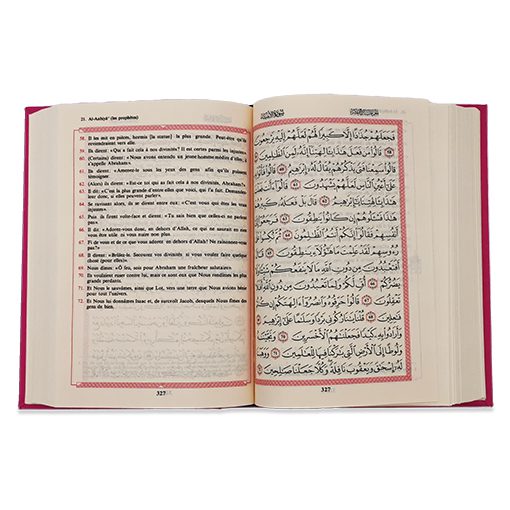 21. Al-Anbiyâ' (les prophètes)
58. Il les mit en pièces, hormis [la statue] la plus grande. Peut-être qu'ils
reviendraient vers elle.
59. Ils dirent: «Qui a fait cela à nos divinités? Il est certes parmi les injustes».
60. (Certains) dirent: «Nous avons entendu un jeune homme médire d'elles, il
s'appelle Abraham».
61. Ils dirent: «Amenez-le sous les yeux des gens afin qu'ils puissent
témoigner.
62. (Alors) ils dirent: «Est-ce toi qui as fait cela à nos divinités, Abraham?»
63. Il dit: «C'est la plus grande d'entre elles que voici, qui l'a fait. Demandez-
leur donc, si elles peuvent parler».
64. Se ravisant alors, ils se dirent entre eux: «C'est vous qui êtes les vrais
injustes».
65. Puis ils firent volte-face et dirent: «Tu sais bien que celles-ci ne parlent
pas».
66. Il dit: «Adorez-vous donc, en dehors d'Allah, ce qui ne saurait en rien
vous être utile ni vous nuire non plus.
67. Fi de vous et de ce que vous adorez en dehors d'Allah! Ne raisonnez-vous
pas?»
68. Il dirent: «Brûlez-le. Secourez vos divinités si vous voulez faire quelque
chose (pour elles)».
69. Nous dîmes: «Ô feu, sois pour Abraham une fraîcheur salutaire».
70. Ils voulaient ruser contre lui, mais ce sont eux que Nous rendîmes les plus
grands perdants.
71. Et Nous le sauvâmes, ainsi que Lot, vers une terre que Nous avions bénie
pour tout l'univers.
72. Et Nous lui donnâmes Isaac et, de surcroît Jacob, desquels Nous fîmes des
gens de bien.
327
فَجَعَلَهُمْ جُذَاذًا إِلَّا كَبِيرًا لَّهُمْ لَعَلَّهُمْ إِلَيْهِ يَرْجِعُونَ
٥٨ قَالُوا۟ مَن فَعَلَ هَٰذَا بِـَٔالِهَتِنَآ إِنَّهُۥ لَمِنَ ٱلظَّٰلِمِينَ
٥٩ قَالُوا۟ سَمِعْنَا فَتًى يَذْكُرُهُمْ يُقَالُ لَهُۥٓ إِبْرَٰهِيمُ ٦٠ قَالُوا۟ فَأْتُوا۟ بِهِۦ
عَلَىٰٓ أَعْيُنِ ٱلنَّاسِ لَعَلَّهُمْ يَشْهَدُونَ ٦١ قَالُوٓا۟ ءَأَنتَ فَعَلْتَ
هَٰذَا بِـَٔالِهَتِنَا يَٰٓإِبْرَٰهِيمُ ٦٢ قَالَ بَلْ فَعَلَهُۥ كَبِيرُهُمْ
هَٰذَا فَسْـَٔلُوهُمْ إِن كَانُوا۟ يَنطِقُونَ ٦٣ فَرَجَعُوٓا۟ إِلَىٰٓ
أَنفُسِهِمْ فَقَالُوٓا۟ إِنَّكُمْ أَنتُمُ ٱلظَّٰلِمُونَ ٦٤ ثُمَّ نُكِسُوا۟ عَلَىٰ
رُءُوسِهِمْ لَقَدْ عَلِمْتَ مَا هَٰٓؤُلَآءِ يَنطِقُونَ ٦٥ قَالَ
أَفَتَعْبُدُونَ مِن دُونِ ٱللَّهِ مَا لَا يَنفَعُكُمْ شَيْـًٔا وَلَا
يَضُرُّكُمْ ٦٦ أُفٍّ لَّكُمْ وَلِمَا تَعْبُدُونَ مِن دُونِ ٱللَّهِ أَفَلَا
تَعْقِلُونَ ٦٧ قَالُوا۟ حَرِّقُوهُ وَٱنصُرُوٓا۟ ءَالِهَتَكُمْ إِن كُنتُمْ
فَٰعِلِينَ ٦٨ قُلْنَا يَٰنَارُ كُونِى بَرْدًا وَسَلَٰمًا عَلَىٰٓ إِبْرَٰهِيمَ ٦٩
وَأَرَادُوا۟ بِهِۦ كَيْدًا فَجَعَلْنَٰهُمُ ٱلْأَخْسَرِينَ ٧٠ وَنَجَّيْنَٰهُ
وَلُوطًا إِلَى ٱلْأَرْضِ ٱلَّتِى بَٰرَكْنَا فِيهَا لِلْعَٰلَمِينَ ٧١ وَوَهَبْنَا
لَهُۥٓ إِسْحَٰقَ وَيَعْقُوبَ نَافِلَةً وَكُلًّا جَعَلْنَا صَٰلِحِينَ ٧٢
327